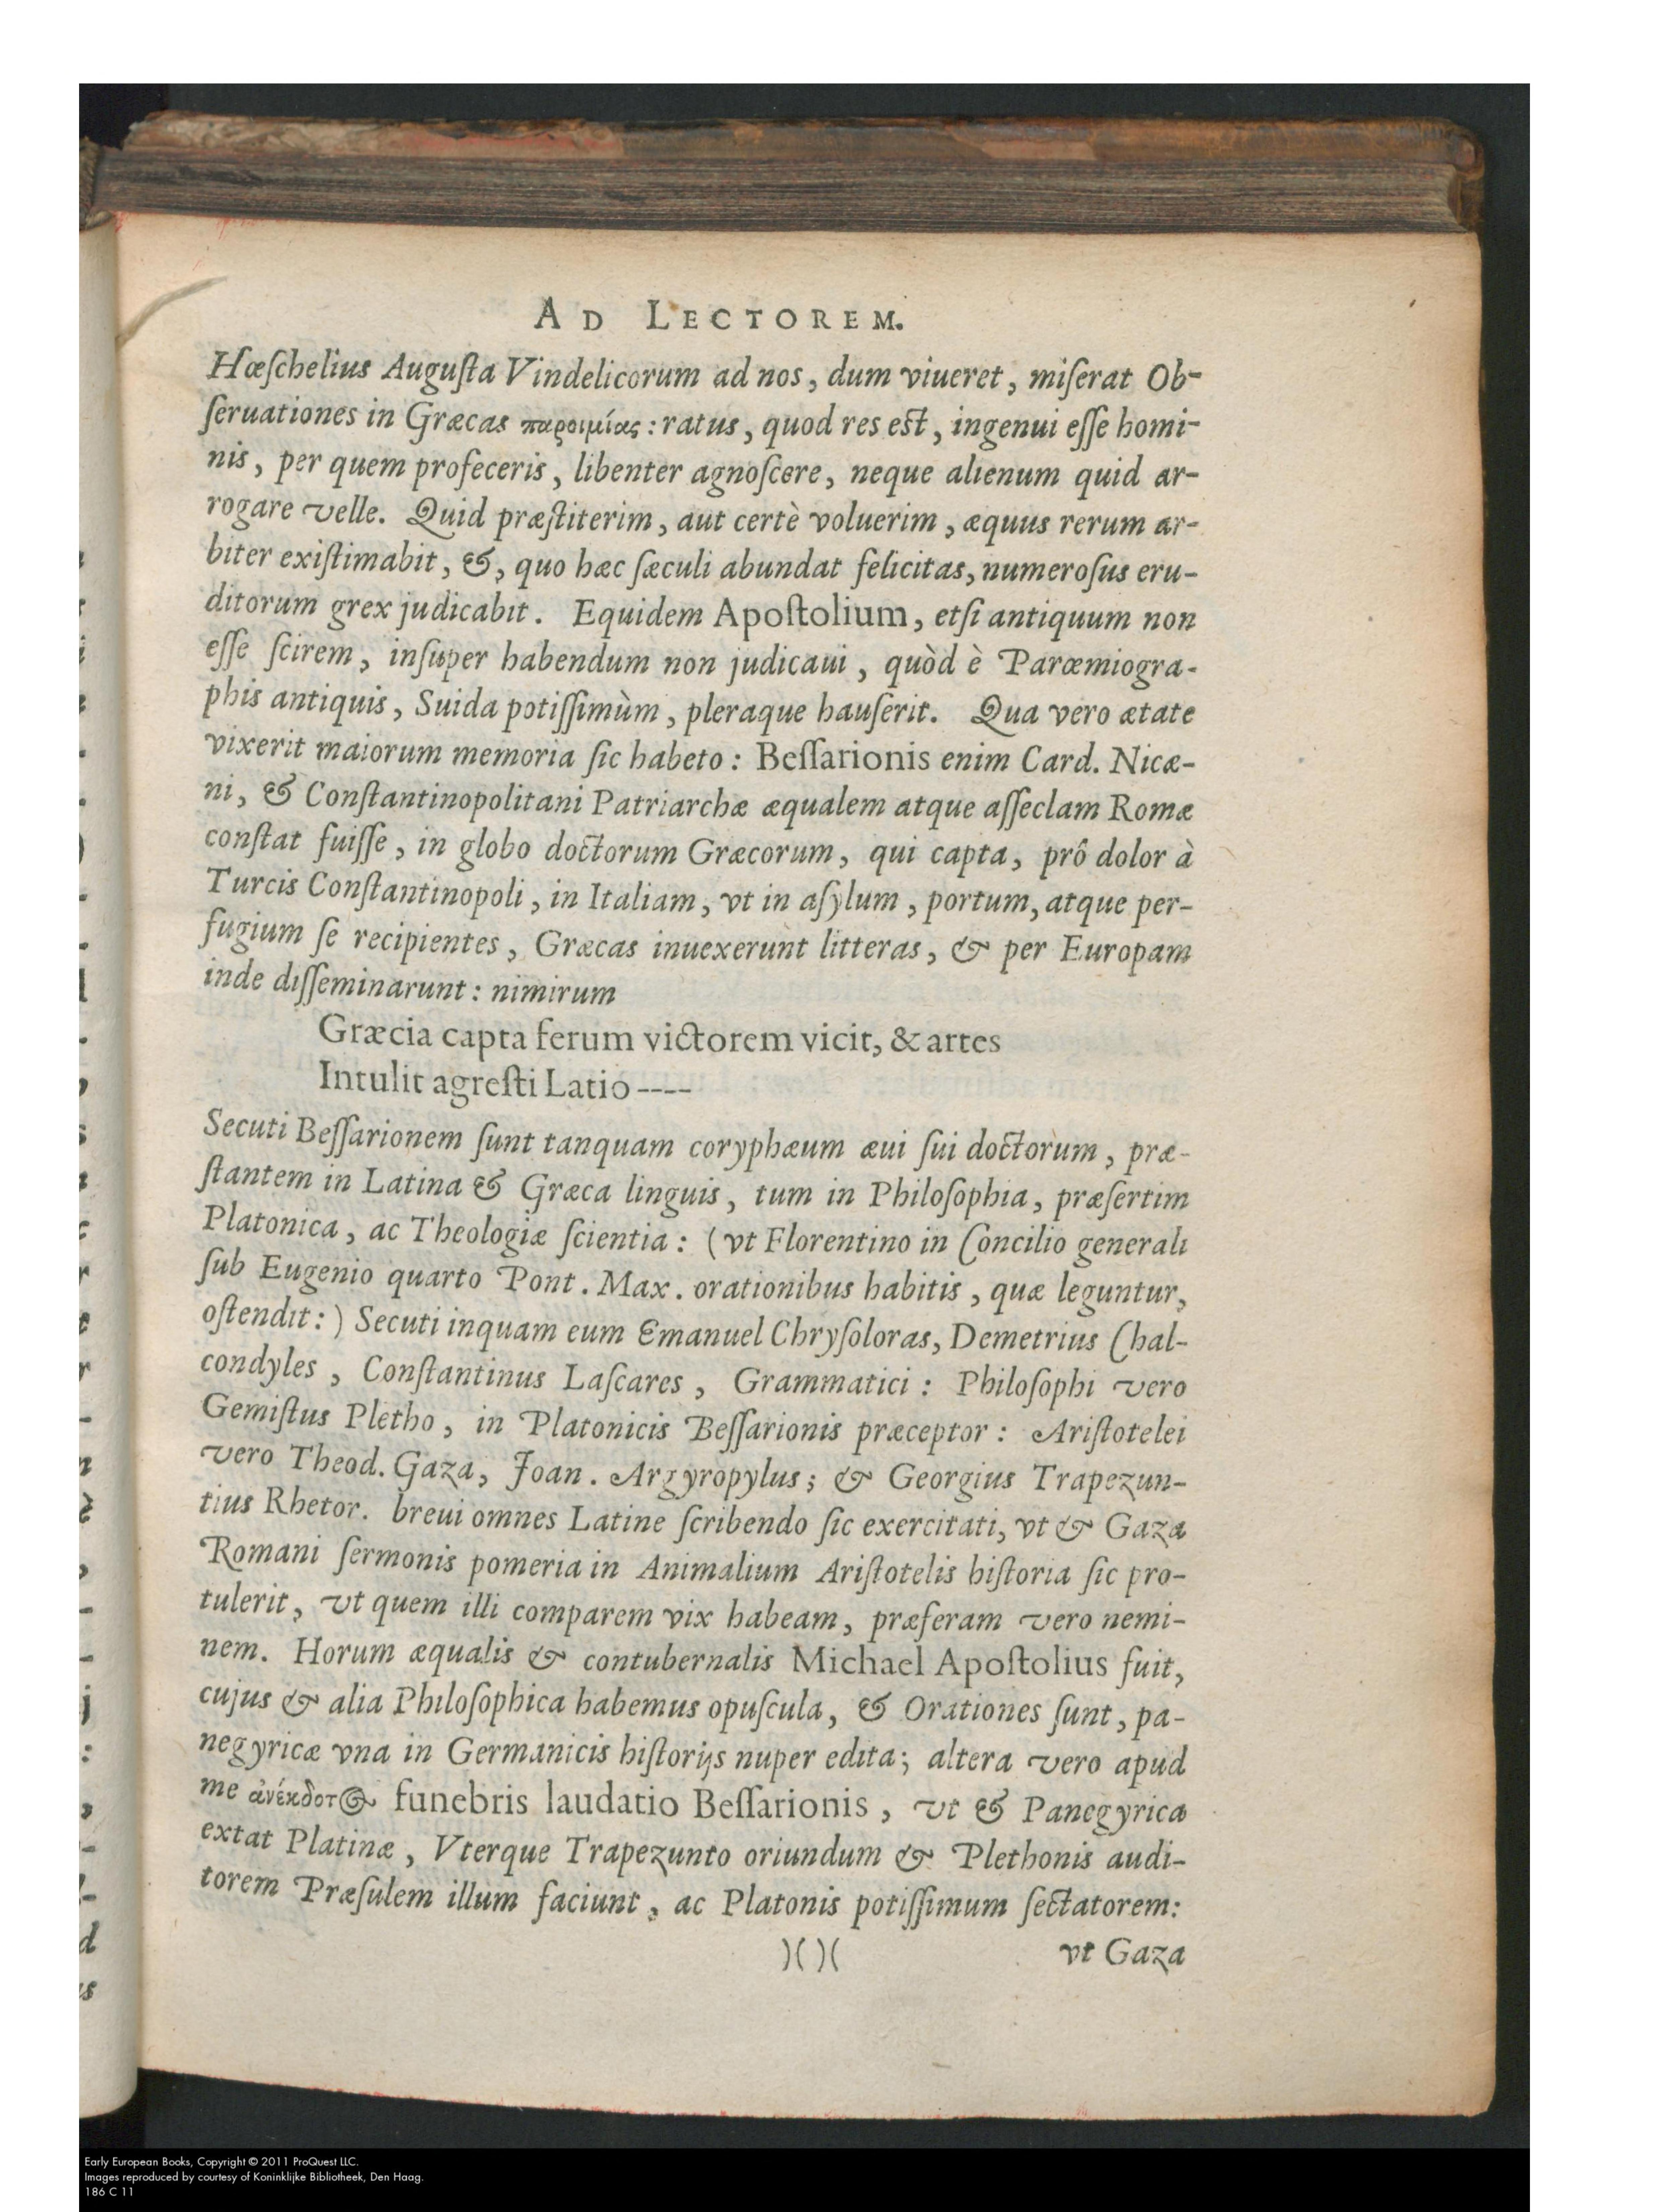 AD LECTOREM.
Hœſchelius Auguſta Vindelicorum ad nos, dum viueret, miſerat Ob-
ſeruationes in Græcas παροιμίας: ratus, quod res est, ingenui eſſe homi-
nis, per quem profeceris, libenter agnoſcere, neque alienum quid ar-
rogare velle. Quid præſtiterim, aut certè voluerim, æquus rerum ar-
biter exiſtimabit, &, quo hæc ſæculi abundat felicitas, numeroſus eru-
ditorum grex judicabit. Equidem Apoſtolium, etſi antiquum non
eſſe ſcirem, inſuper habendum non judicaui, quòd è Parœmiogra-
phis antiquis, Suida potiſſimùm, pleraque hauſerit. Qua vero ætate
vixerit maiorum memoria ſic habeto: Beſſarionis enim Card. Nicæ-
ni, & Conſtantinopolitani Patriarchæ æqualem atque aſſeclam Romæ
conſtat fuiſſe, in globo doctorum Græcorum, qui capta, prô dolor à
Turcis Conſtantinopoli, in Italiam, vt in aſylum, portum, atque per-
fugium ſe recipientes, Græcas inuexerunt litteras, & per Europam
inde diſſeminarunt: nimirum
Græcia capta ferum victorem vicit, & artes
Intulit agreſti Latio----
Secuti Beſſarionem ſunt tanquam coryphæum æui ſui doctorum, præ-
ſtantem in Latina & Græca linguis, tum in Philoſophia, præſertim
Platonica, ac Theologiæ ſcientia: (vt Florentino in Concilio generali
ſub Eugenio quarto Pont. Max. orationibus habitis, quæ leguntur,
oſtendit:) Secuti inquam eum Emanuel Chryſoloras, Demetrius Chal-
condyles, Conſtantinus Laſcares, Grammatici: Philoſophi vero
Gemiſtus Pletho, in Platonicis Beſſarionis præceptor: Ariſtotelei
vero Theod. Gaza, Joan. Argyropylus; & Georgius Trapezun-
tius Rhetor. breui omnes Latine ſcribendo ſic exercitati, vt & Gaza
Romani ſermonis pomeria in Animalium Ariſtotelis hiſtoria ſic pro-
tulerit, vt quem illi comparem vix habeam, præferam vero nemi-
nem. Horum æqualis & contubernalis Michael Apoſtolius fuit,
cujus & alia Philoſophica habemus opuſcula, & Orationes ſunt, pa-
negyricæ vna in Germanicis hiſtorijs nuper edita; altera vero apud
me ἀνέκδοτος funebris laudatio Beſſarionis, vt & Panegyrica
extat Platinæ, Vterque Trapezunto oriundum & Plethonis audi-
torem Præſulem illum faciunt, ac Platonis potiſſimum ſectatorem:
)( )( vt Gaza
Early European Books, Copyright © 2011 ProQuest LLC.
Images reproduced by courtesy of Koninklijke Bibliotheek, Den Haag.
186 C 11